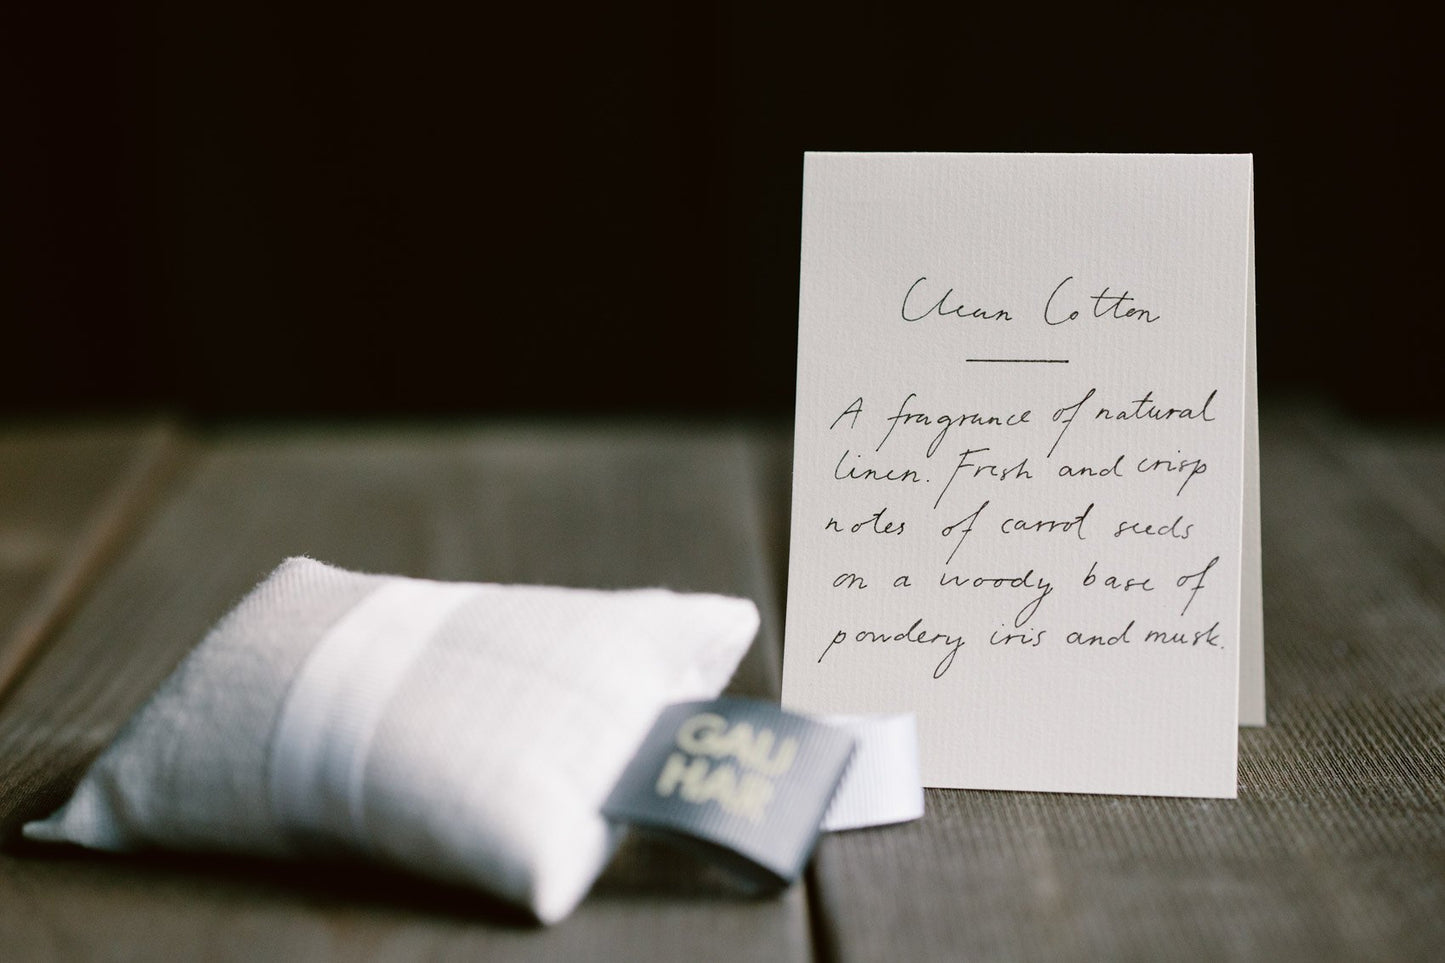 Clean Cotton
A fragrance of natural
linen. Fresh and crisp
notes of carrot seeds
on a woody base of
powdery iris and musk.
GALI
HAIR